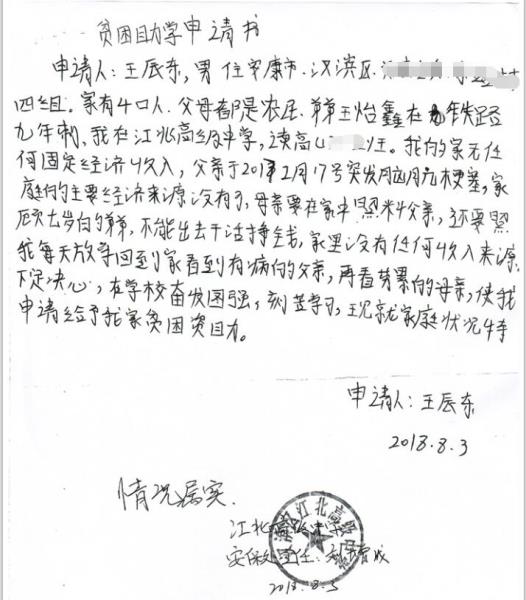 贫困助学申请书
申请人:王辰东,男 住安康市.汉滨区.
四组.家有4口人.父母都是农民.弟弟王怡鑫在
九年制.我在江北高级中学,读高 班.我的家无任
何固定经济收入,父亲于201 年2月17号突发脑 梗塞,家
庭的主要经济来源没有了,母亲要在家中照 父亲,还要照
顾七岁的弟弟,不能出去干活挣钱,家里没有任何收入来源
我每天放学回到家看到有病的父亲,再看劳累的母亲,使我
下定决心,在学校奋发图强,刻苦学习,现就家庭状况特
申请给予我家贫困资助。
申请人:王辰东
2018.8.3
情况属实.
江北高级中学
安保处主任:
2018.8.5